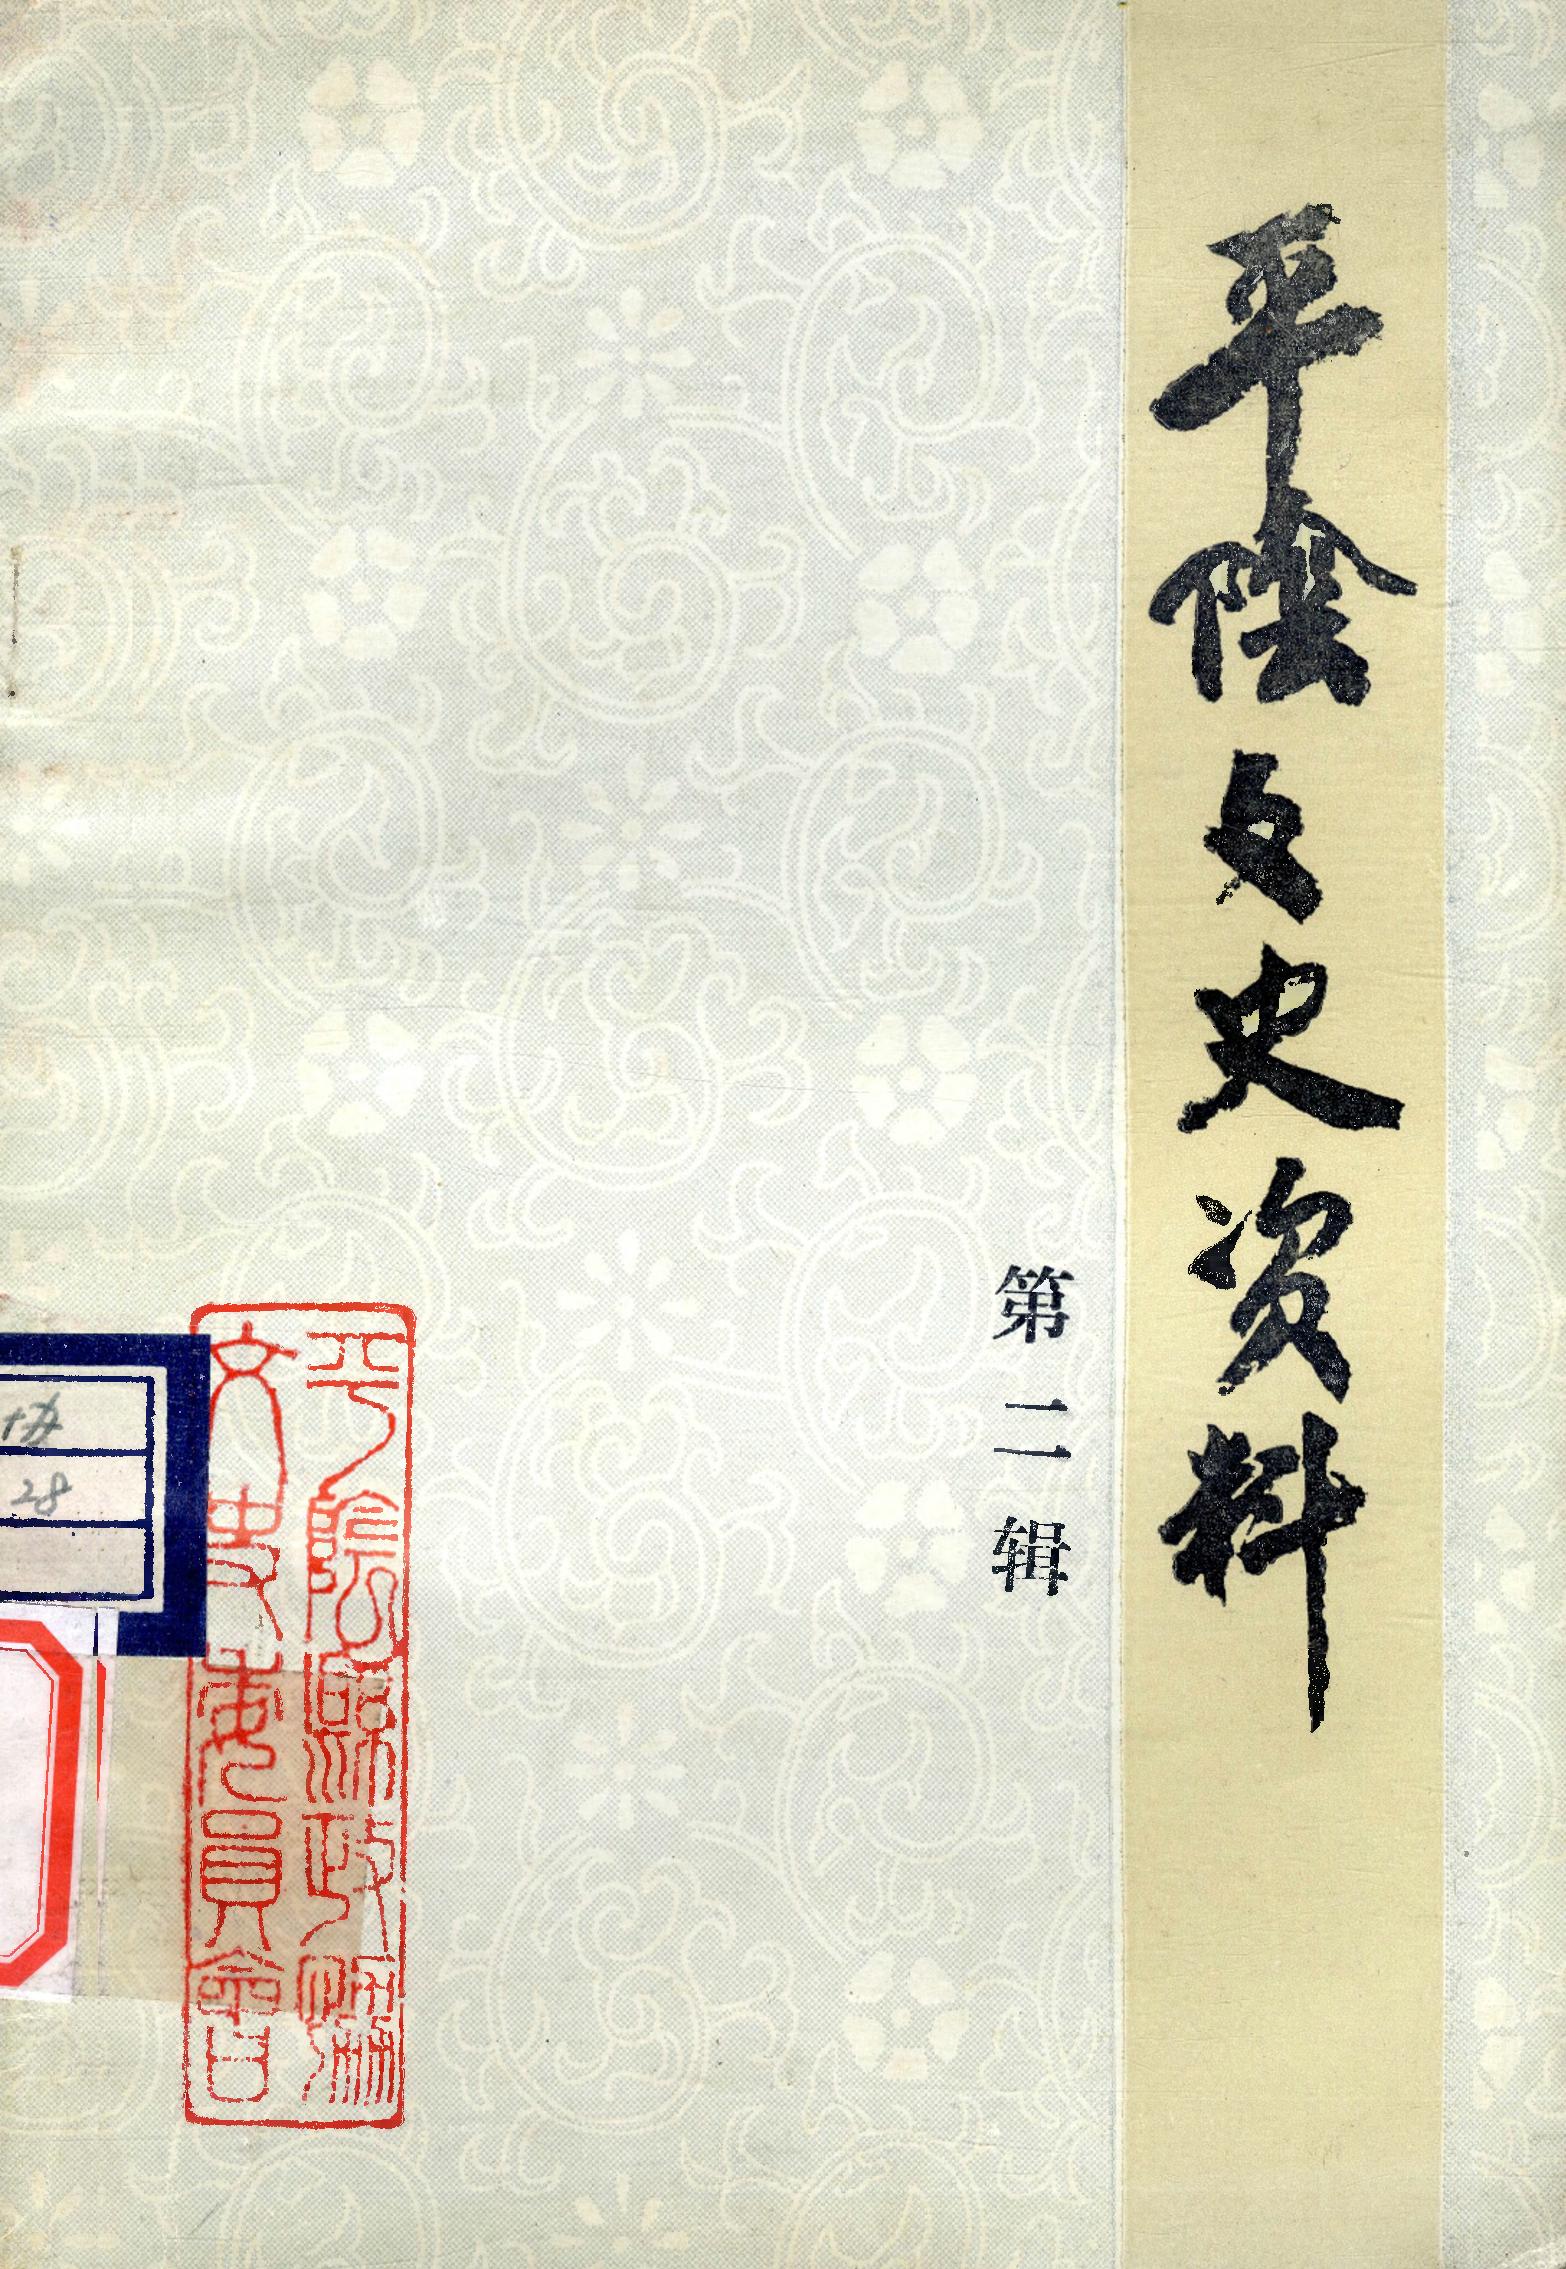 平陰文史资料
第二辑
平陰縣政協
文史委員會
28